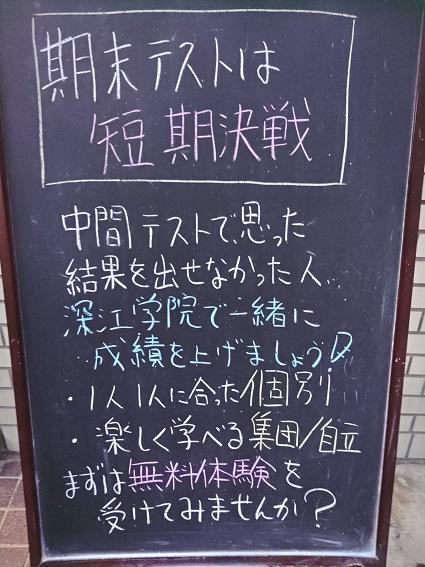 期末テストは
短期決戦
中間テストで、思った
結果を出せなかった人…
深江学院で一緒に
成績を上げましょう!
・1人1人に合った個別
・楽しく学べる集団/自立
まずは無料体験を
受けてみませんか?